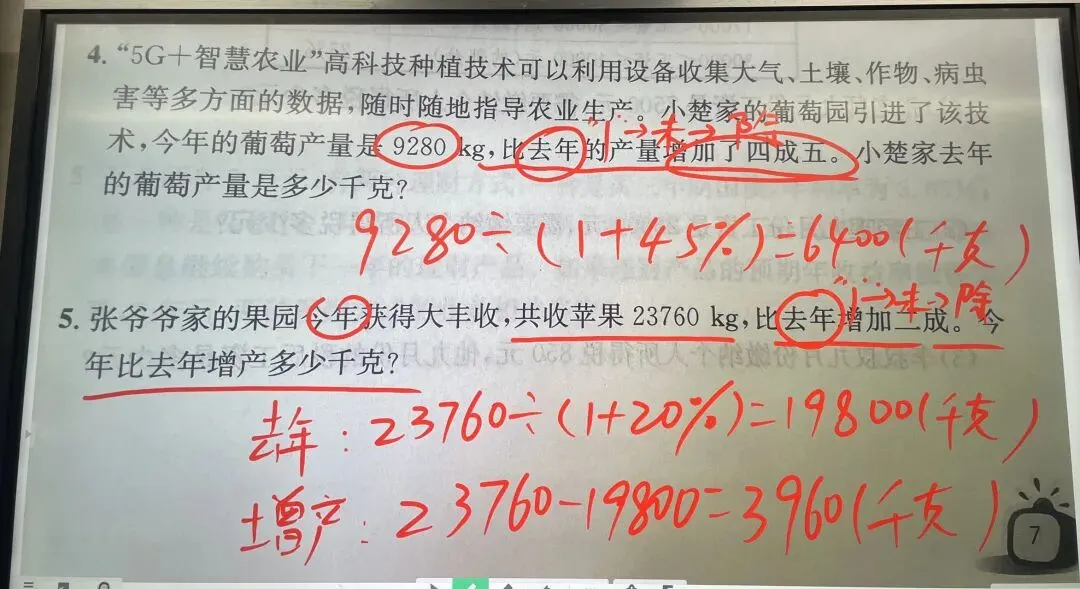 4. “5G＋智慧农业”高科技种植技术可以利用设备收集大气、土壤、作物、病虫
害等多方面的数据，随时随地指导农业生产。小楚家的葡萄园引进了该技
"1"→未→除
术，今年的葡萄产量是 9280 kg，比去年的产量增加了四成五。小楚家去年
的葡萄产量是多少千克？
9280÷（1+45%）=6400（千克）
"1"→未→除
5. 张爷爷家的果园今年获得大丰收，共收苹果 23760 kg，比去年增加二成。今
年比去年增产多少千克？
去年：23760÷（1+20%）=19800（千克）
增产：23760-19800=3960（千克）
7